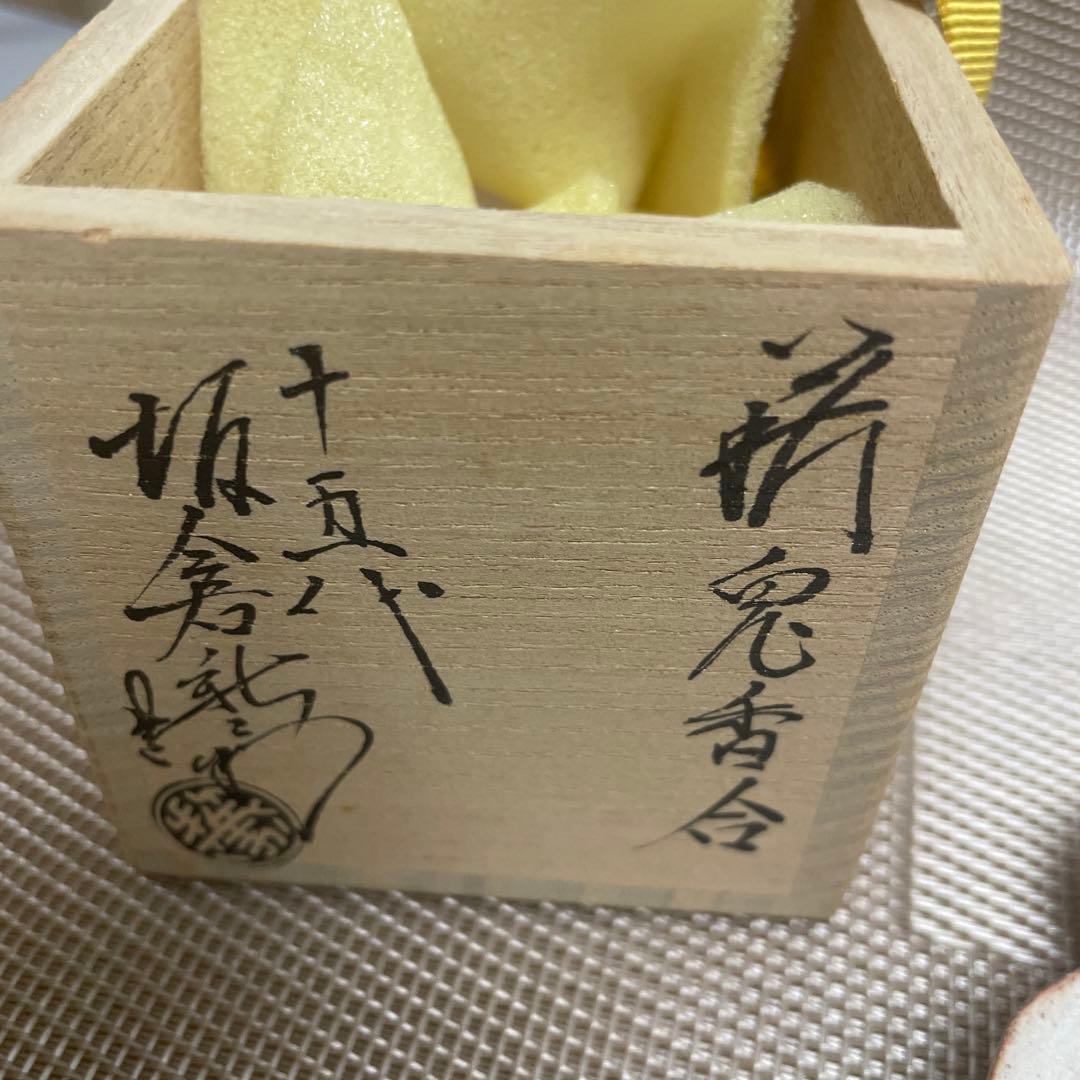 萩兎香合
十五代
坂倉新兵衛